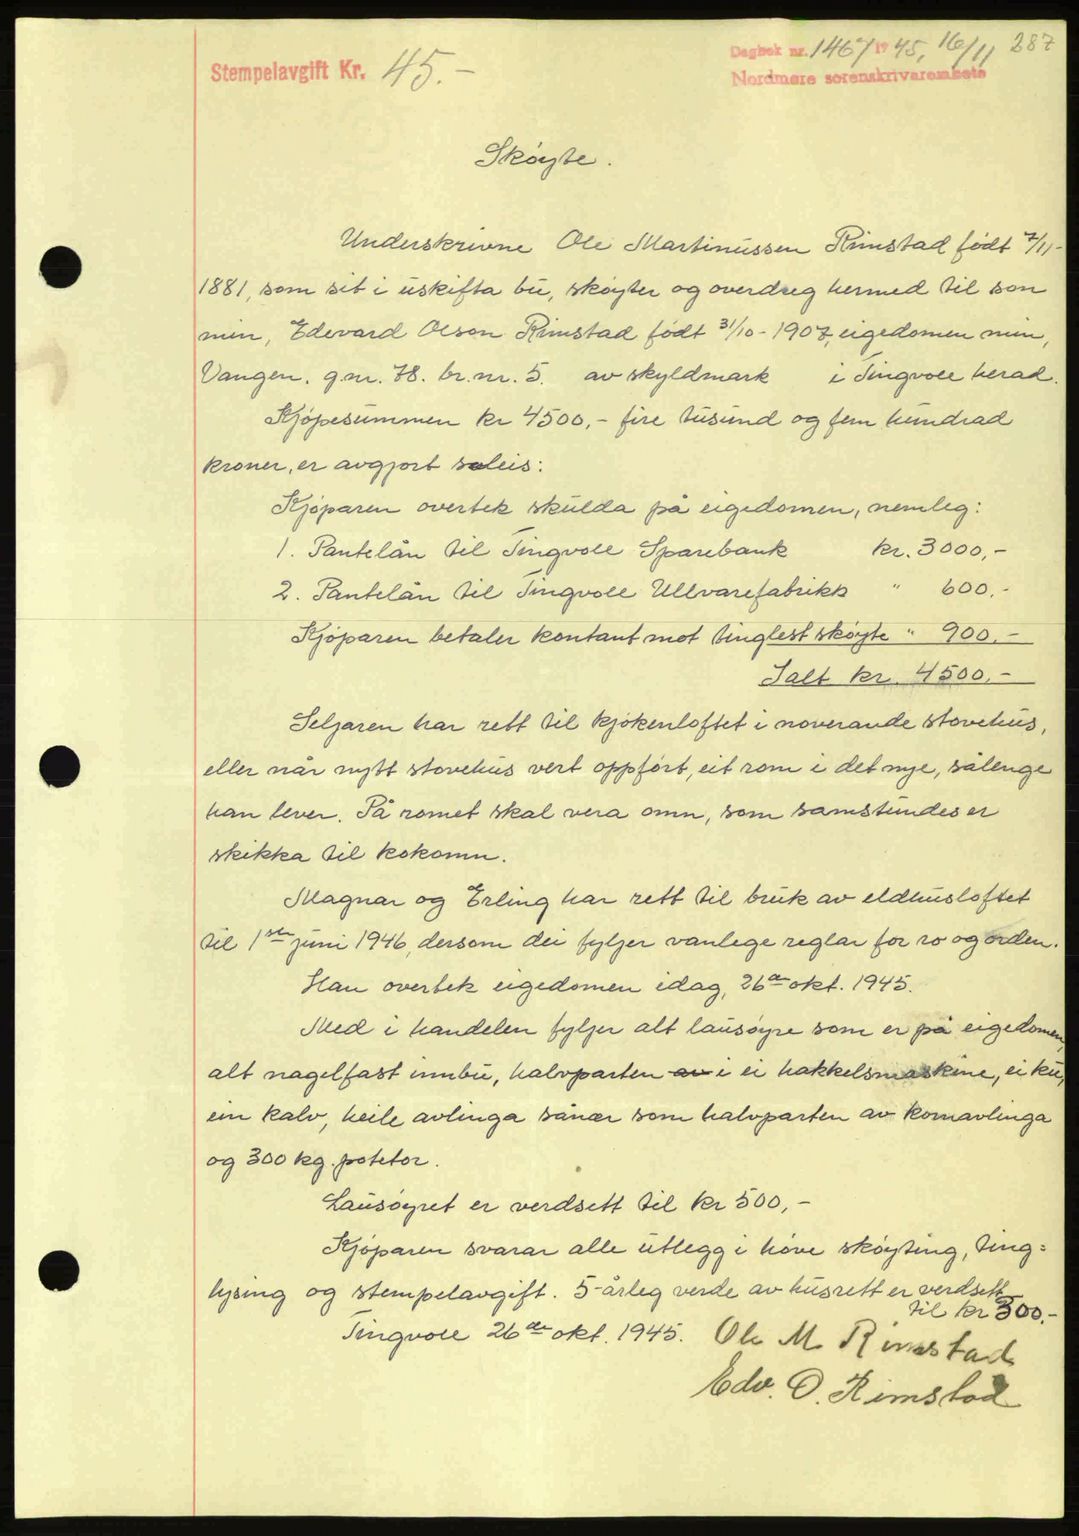 Stempelavgift Kr. 45.-
Dagbok nr. 1467 1945, 16/11 287
Nordmøre sorenskrivarembete
Skøyte.
Underskrivne Ole Martinussen Rimstad født 7/11-
1881, som sit i uskifta bu, skøyter og overdreg hermed til son
min, Edevard Olson Rimstad født 31/10-1907, eigedomen min,
Vangen. g.nr. 78. br.nr. 5. av skyldmark i Tingvoll herad.
Kjøpesummen kr 4500,- fire tusund og fem hundrad
kroner, er avgjort soleis:
Kjøparen overtek skulda på eigedomen, nemleg:
1. Pantelån til Tingvoll Sparebank kr. 3000,-
2. Pantelån til Tingvoll Ullvarefabrikk " 600.-
Kjøparen betaler kontant mot tinglest skøyte " 900.-
Ialt kr. 4500.-
Seljaren har rett til kjøkenloftet i noverande stovehus,
eller når nytt stovehus vert oppført, eit rom i det nye, sålenge
han lever. På romet skal vera omn, som samstundes er
skikka til kokomn.
Magnar og Erling har rett til bruk av eldhusloftet
til 1ste juni 1946, dersom dei fyljer vanlege reglar for ro og orden.
Han overtek eigedomen idag, 26de okt. 1945.
Med i handelen fyljer alt lausøyre som er på eigedomen,
alt nagelfast innbu, halvparten av i ei hakkelsmaskine, ei ku,
ein kalv, heile avlinga sånær som halvparten av kornavlinga
og 300 kg. potetor.
Lausøyret er verdsett til kr 500,-
Kjøparen svarar alle utlegg i høve skøyting, ting=
lysing og stempelavgift. 5-årleg verde av husrett er verdsett
til kr 300.-
Tingvoll 26de okt. 1945. Ole M Rimstad
Edv. O. Rimstad